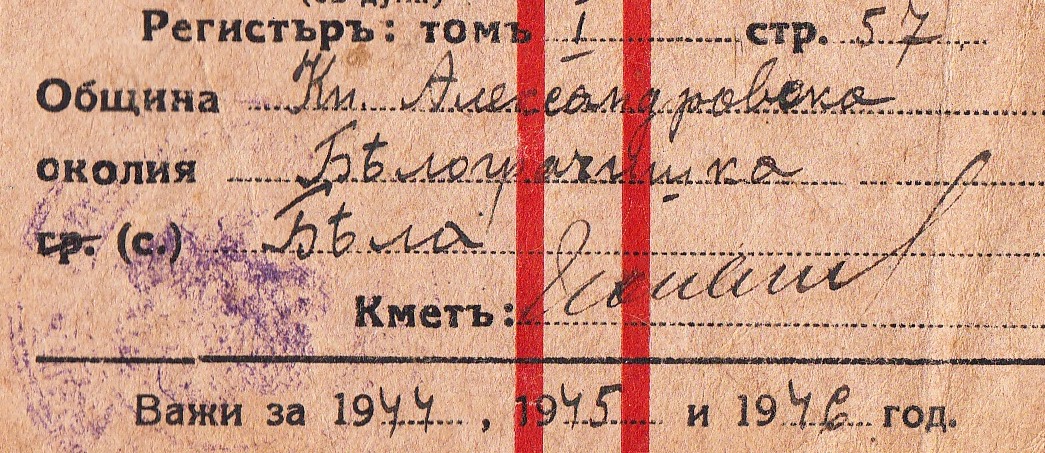 Регистъръ: томъ I стр. 57
Община Кн. Александровска
околия Бѣлоградчишка
гр. (с.) Бѣла
Кметъ:
Важи за 1944, 1945 и 1946 год.